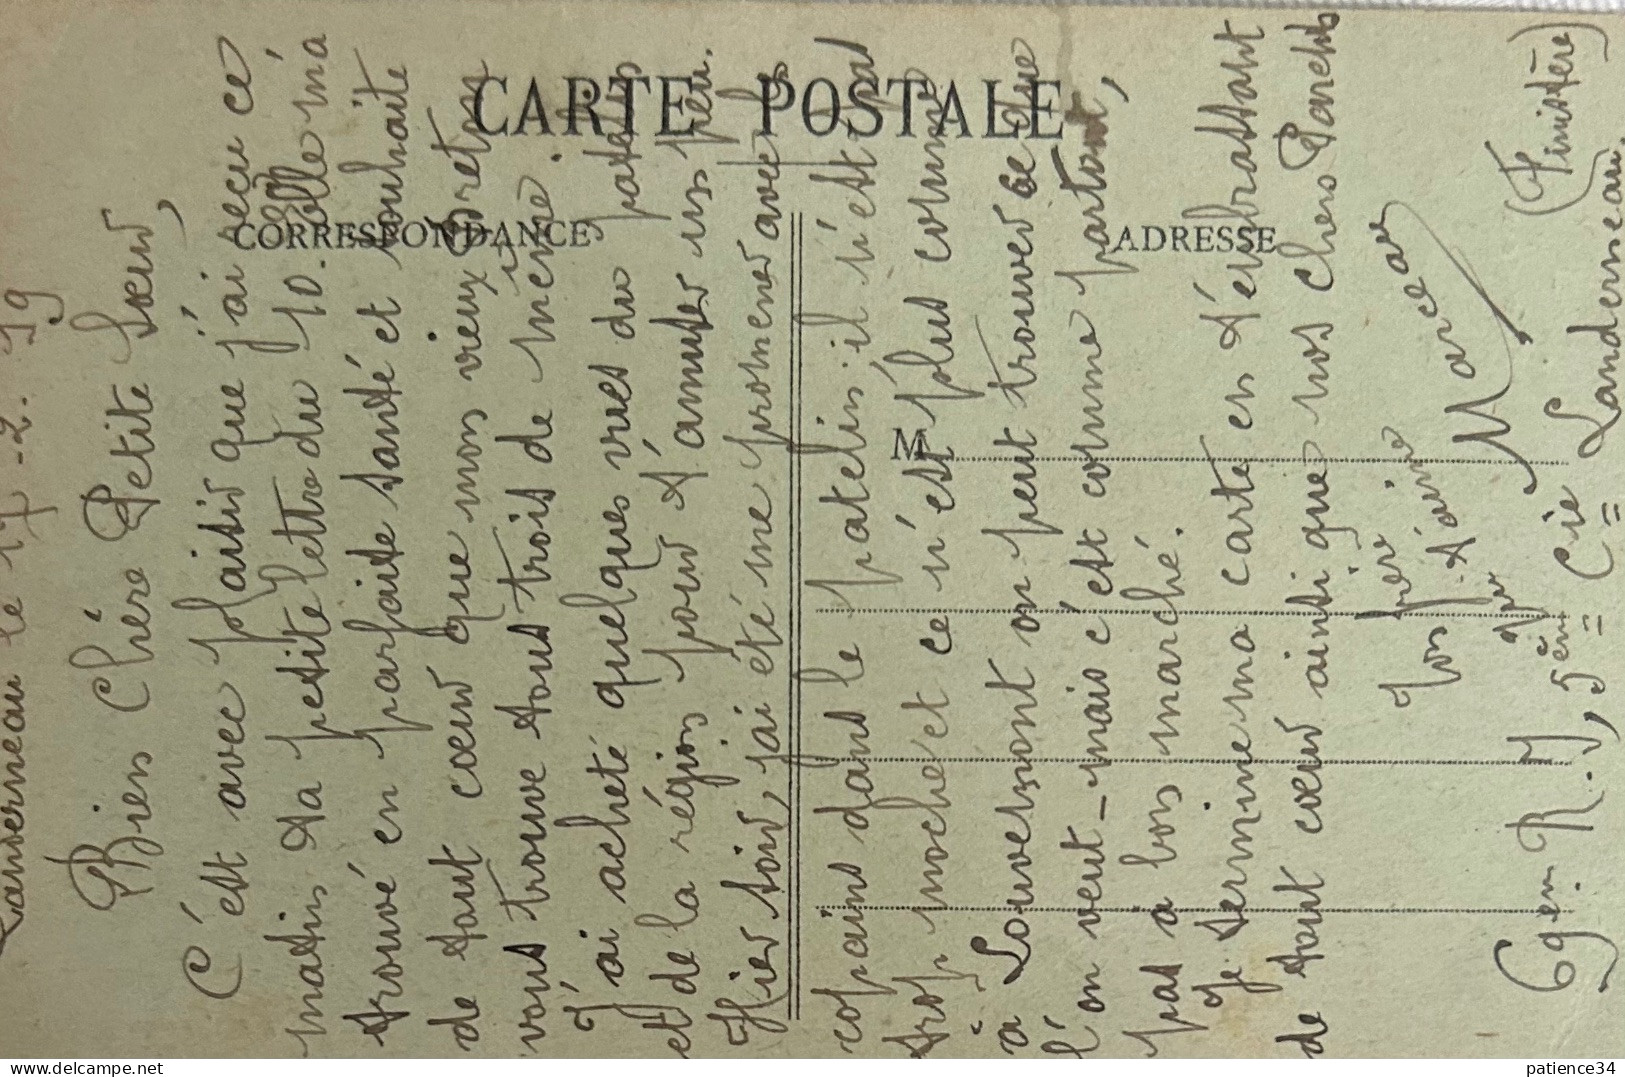 Landerneau le 17-2.19
Bien Chère Petite Sœur,
C'est avec plaisir que j'ai reçu ce
matin ta petite lettre du 10. Elle m'a
trouvé en parfaite santé et souhaite
de tout cœur que mon vieux
vous trouve tous trois de même.
J'ai acheté quelques vues du patelin
et de la région pour t'amuser un peu.
Hier soir, j'ai été me promener avec les
copains dans le patelin: il n'est pas
trop moche et ce n'est plus comme
à Louvemont on peut trouver ce que
l'on veut - mais c'est comme partout,
pas à bon marché.
Je termine ma carte en t'embrassant
de tout cœur ainsi que nos chers Parents
Ton frère qui
t'aime
Marceau
6 gén. R.M, 5ème Cie Landerneau.
(Finistère)
CARTE POSTALE
CORRESPONDANCE
ADRESSE
M
delcampe.net
patience34